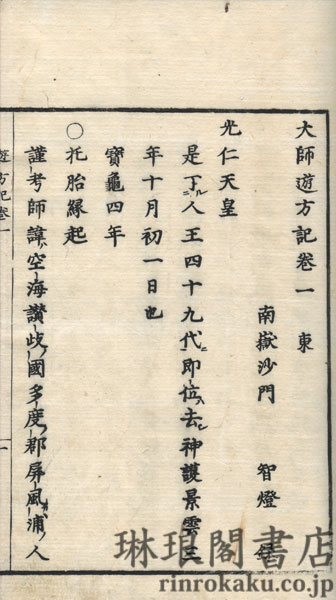 大師遊方記卷一　東
南嶽沙門　智燈
光仁天皇
是丁人王四十九代即位去神護景雲三
年十月初一日也
寶龜四年
○托胎緣起
謹考師諱空海讃歧國多度郡屏風浦人
遊方記卷一
一
琳琅閣書店
rinrokaku.co.jp